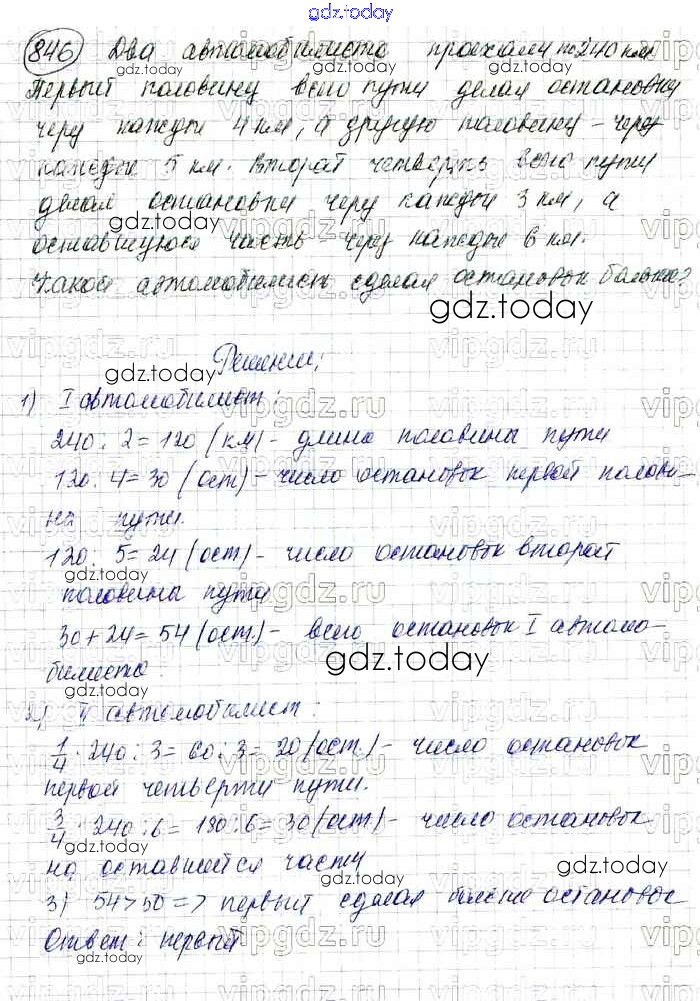 gdz.today
846 Два автомобилиста проехали по 240 км.
Первый половину всего пути делал остановку
через каждые 4 км, а другую половину - через
каждые 5 км. Второй четверть всего пути
делал остановки через каждые 3 км, а
оставшуюся часть - через каждые 6 км.
Какой автомобилист сделал остановок больше?
gdz.today
Решение:
1) I автомобилист:
240 : 2 = 120 (км) - длина половины пути
120 : 4 = 30 (ост) - число остановок первой полови-
ны пути.
120 : 5 = 24 (ост) - число остановок второй
половины пути
30 + 24 = 54 (ост.) - всего остановок I автомо-
билиста.
gdz.today
2) II автомобилист:
1/4 · 240 : 3 = 60 : 3 = 20 (ост.) - число остановок
первой четверти пути.
3/4 · 240 : 6 = 180 : 6 = 30 (ост) - число остановок
на оставшейся части
3) 54 > 50 => первый сделал больше остановок
Ответ: первый
vipgdz.ru